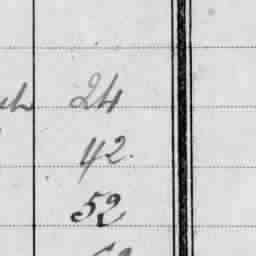 24
42.
52